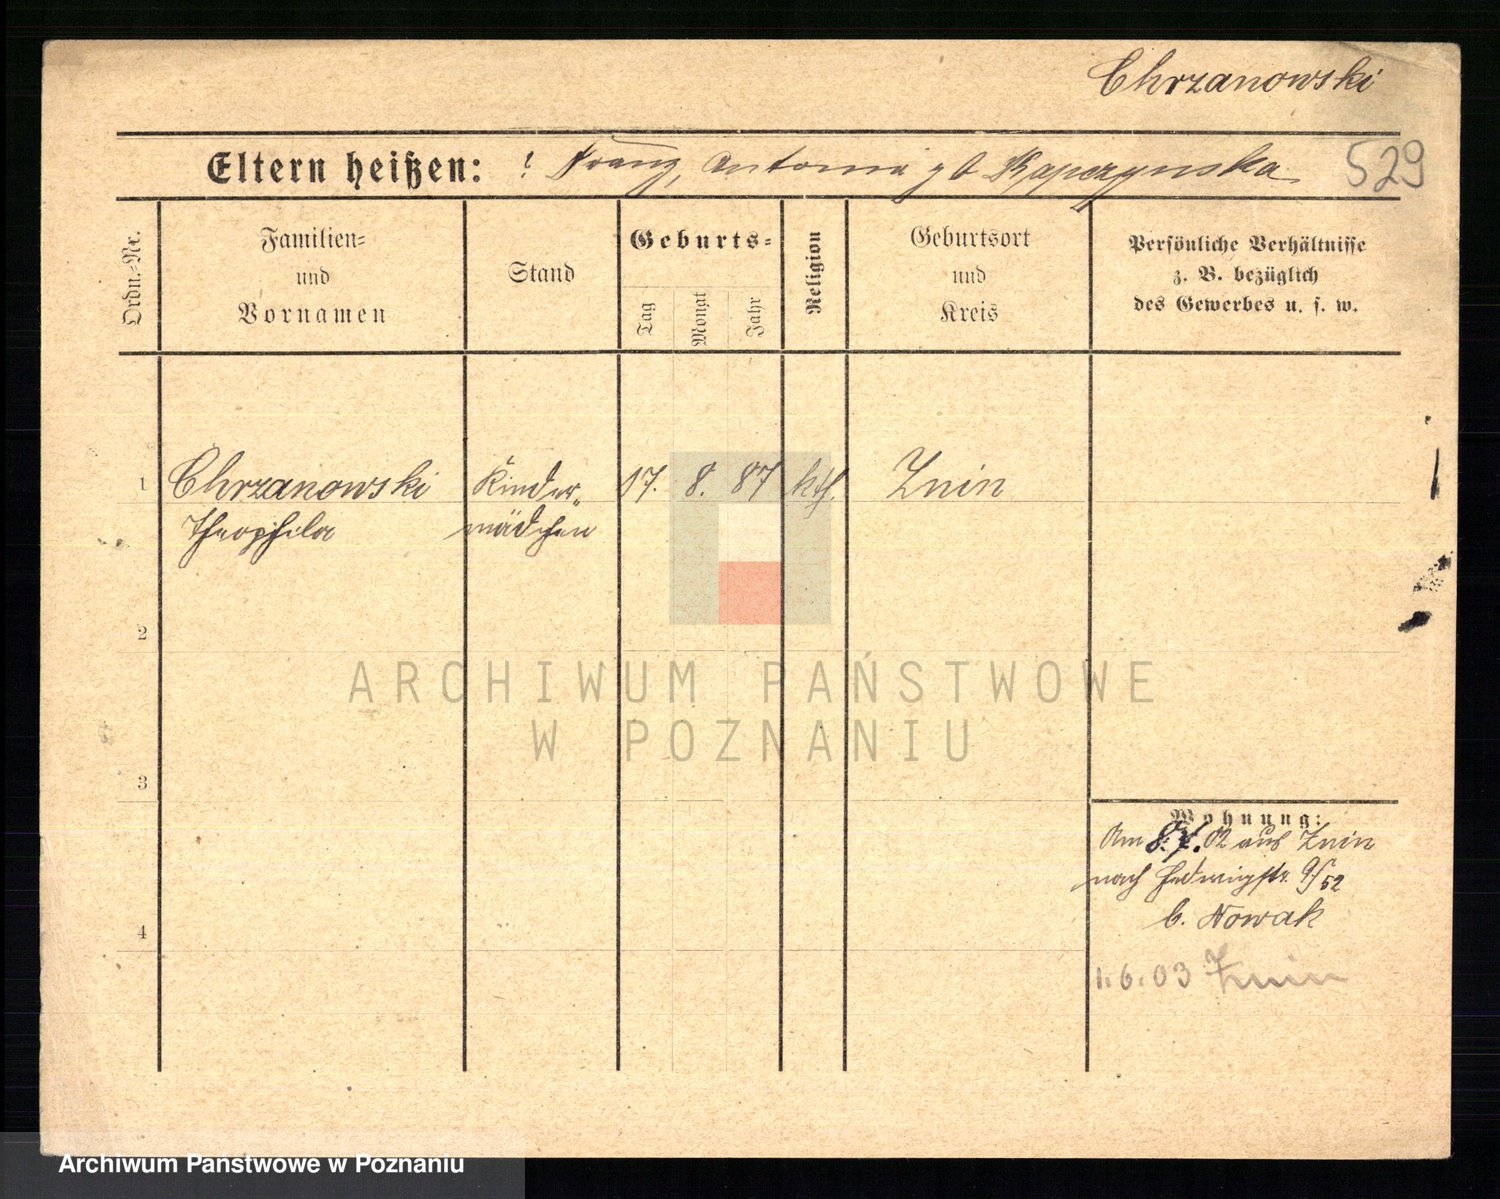 Chrzanowski
Eltern heißen: ? Franz, Antonie gb Kapczynska 529
Ordn.-Nr.
Familien-
und
Vornamen
Stand
Geburts-
Tag
Monat
Jahr
Religion
Geburtsort
und
Kreis
Persönliche Verhältnisse
z. B. bezüglich
des Gewerbes u. s. w.
1 Chrzanowski Kinder- 17. 8. 87 kth. Znin
Theophila mädchen
2
3
4
Wohnung:
Am 8.7.02 aus Znin
nach Hedwigstr. 9/52
b. Nowak
1.6.03 Znin
ARCHIWUM PAŃSTWOWE
W POZNANIU
Archiwum Państwowe w Poznaniu